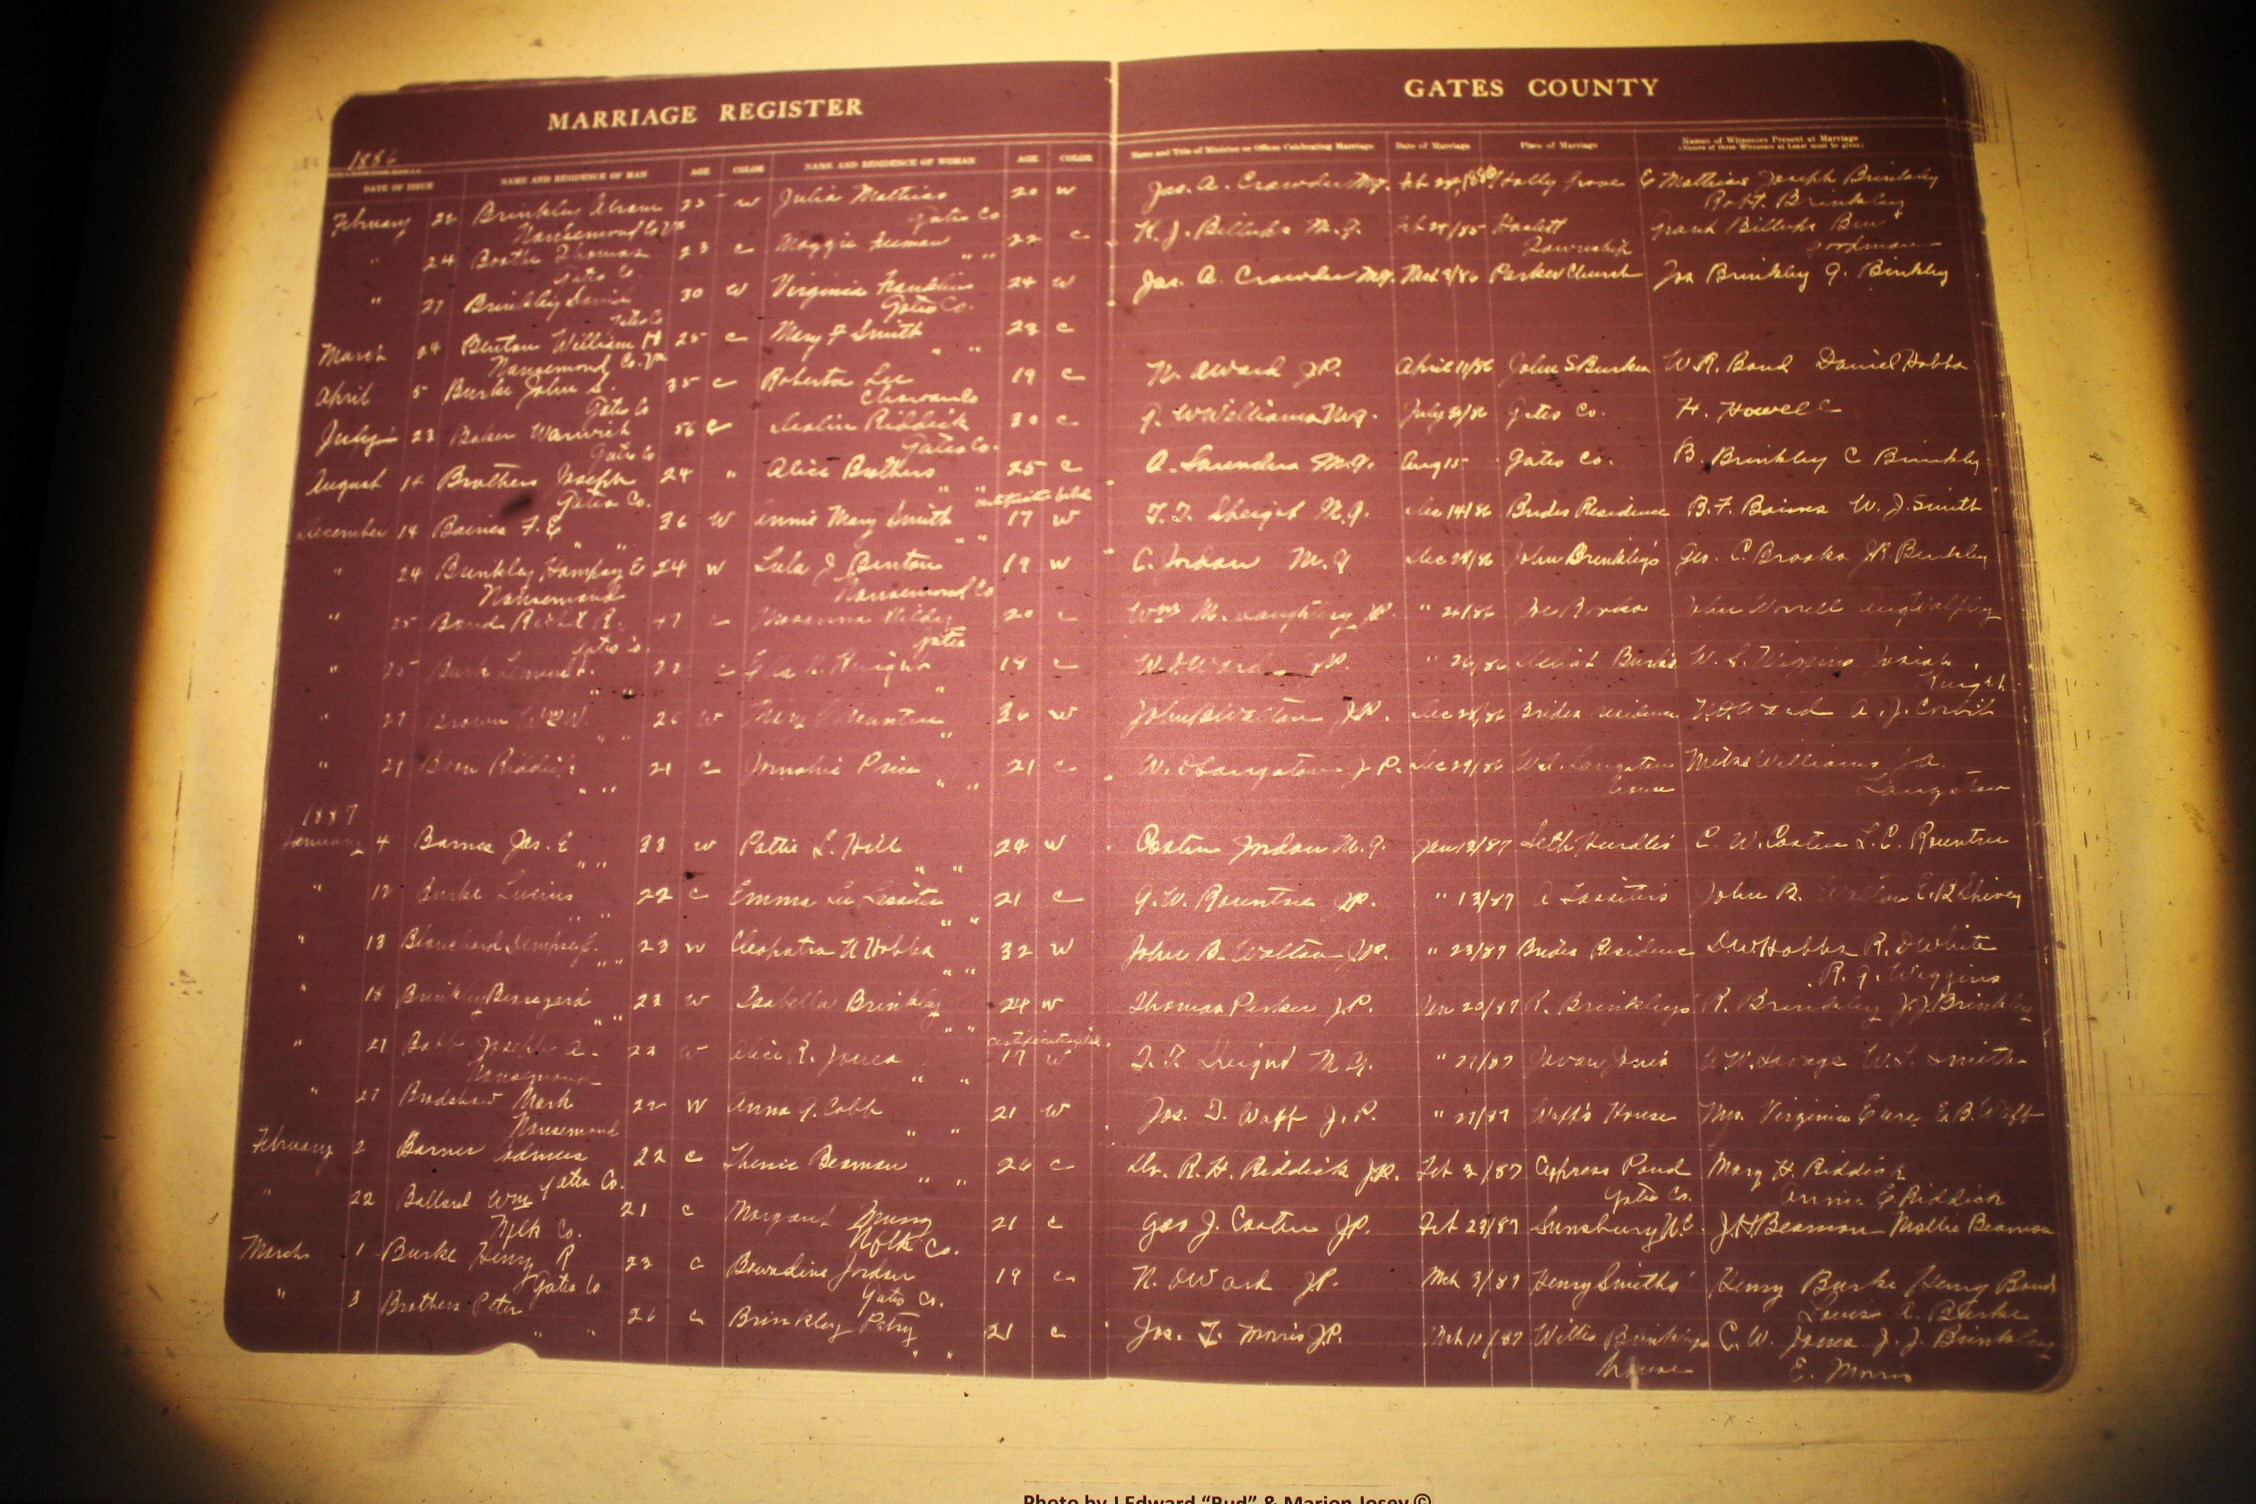 MARRIAGE REGISTER
GATES COUNTY
1886
DATE OF ISSUE NAME AND RESIDENCE OF MAN AGE COLOR NAME AND RESIDENCE OF WOMAN AGE COLOR Name and Title of Minister or Officer Celebrating Marriage Date of Marriage Place of Marriage Names of Witnesses Present at Marriage
(Names of three Witnesses at Least must be given)
February 22 Brinkley Abram 25 W Julia Mathias 20 W Jas. A. Crowder M.G. Holly Grove C Mathias Joseph Brinkley
Nansemond Co Va Gates Co Robt. Brinkley
" 24 Boothe Thomas 23 C Maggie 22 C K. J. Billups M.G. Haslett Frank Billups Ben
Gates Co " " Township Goodman
" 27 Brinkley David 30 W Virginia Franklin 24 W Jas. A. Crowder M.G. Mch 3/86 Parker Church Jos Brinkley G. Brinkley
Gates Co Gates Co.
March 24 Benton William H 25 C Mary F Smith 23 C
Nansemond Co. Va " "
April 5 Burke John S. 35 C Roberta Lee 19 C N. O Ward J.P. April 11/86 John S Burkes W. R. Bond Daniel Hobbs
Gates Co Chowan Co
July 23 Baker Warwick 56 C Riddick 30 C G. W Williams M.G. July 30/86 Gates Co. H. Howell
Gates Co Gates Co.
August 14 Brothers Joseph 24 " Alice Brothers 25 C A. Saunders M.G. Aug 15 Gates Co. B. Brinkley C Brinkley
Gates Co. " "
December 14 Baines F. E 36 W Annie Mary Smith 17 W T. T. Speight M.G. Dec 14/86 Brides Residence B. F. Baines W. J. Smith
" " " "
" 24 Brinkley Hampsey E 24 W Lula J Benton 19 W C. Jordan M.G Dec 28/86 John Brinkley's Geo. C. Brooks J R Brinkley
Nansemond Nansemond Co
" 25 Bond R. 47 C 20 C Wm M. Daughtery J.P. " 26/86 John Worrell
Gates Co. Gates
" 25 Burk C 18 C W. O Ward J.P. " 26/86 Burks W. S. Wiggins Josiah
" " " Knight
" 27 Brown Wm W. 26 W 36 W John B Walton J.P. Dec 28/86 Brides residence A. J. Corbit
" " "
" 21 Boon Riddick 21 C Price 21 C W. O Langston J.P. Dec 29/86 Langston Williams J A.
" " " " house Langston
1887
January 4 Barnes Jas. E 33 W Pattie L. Hill 24 W Costen Jordan M.G. Jan 12/87 Seth Hurdle's C. W. Costen L. C. Rountree
" " " "
" 12 Burke Lucius 22 C Emma Lee Lassiter 21 C G. W. Rountree J.P. " 13/87 A Lassiter's John B. Walton E. B Shivey
" " " "
" 13 Blanchard 23 W Cleopatra N Hobbs 32 W John B. Walton J.P. " 23/87 Brides Residence D. W. Hobbs R. D White
" " " " R. G. Wiggins
" 18 Brinkley Beuregard 23 W Isabella Brinkley 24 W Thomas Parker J.P. Jan 20/87 R. Brinkleys R. Brinkley J. J. Brinkley
" " " "
" 21 Babb Joseph A. 22 W Alice R. Jones 17 W T. T. Speight M.G. " 27/87 W. W. Savage W. T. Smith
Nansemond " "
" 27 Bradshaw Mark 22 W Anna J. Cobb 21 W Jos. T. Waff J.P. " 27/87 Waff's House Mrs. Virginia Eure E. B. Waff
Nansemond " "
February 2 Barnes 22 C Beaman 26 C Dr. R. H. Riddick J.P. Feb 2/87 Cypress Pond Mary H. Riddick
Gates Co. " " Gates Co. Annie E Riddick
" 22 Ballard Wm 21 C Margaret 21 C Geo J. Costen J.P. Feb 23/87 Sunsbury N.C. J. H Beamon Mollie Beamon
Nflk Co. Nflk Co.
March 1 Burke Henry R 23 C Jordan 19 C N. O Ward J.P. Mch 3/87 Henry Smiths' Henry Burke Henry Bond
Gates Co Gates Co. Lewis A. Burke
" 3 Brothers Peter 26 C Brinkley Patsy 21 C Jos. T. Morris J.P. Mch 10/87 Willis Brinkleys C. W. Jones J. J. Brinkley
" " " " house E. Morris
Photo by J Edward "Bud" & Marion Josey ©